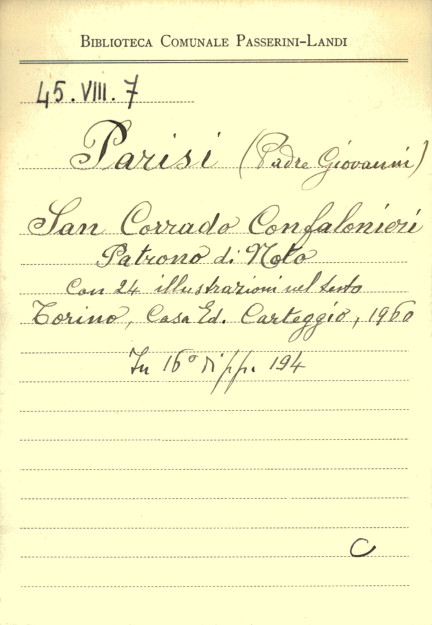 BIBLIOTECA COMUNALE PASSERINI-LANDI
45.VIII.7
Parisi (Padre Giovanni)
San Corrado Confalonieri
Patrono di Noto
Con 24 illustrazioni nel testo
Torino, Casa Ed. Carteggio, 1960
In 16° di pp. 194
C